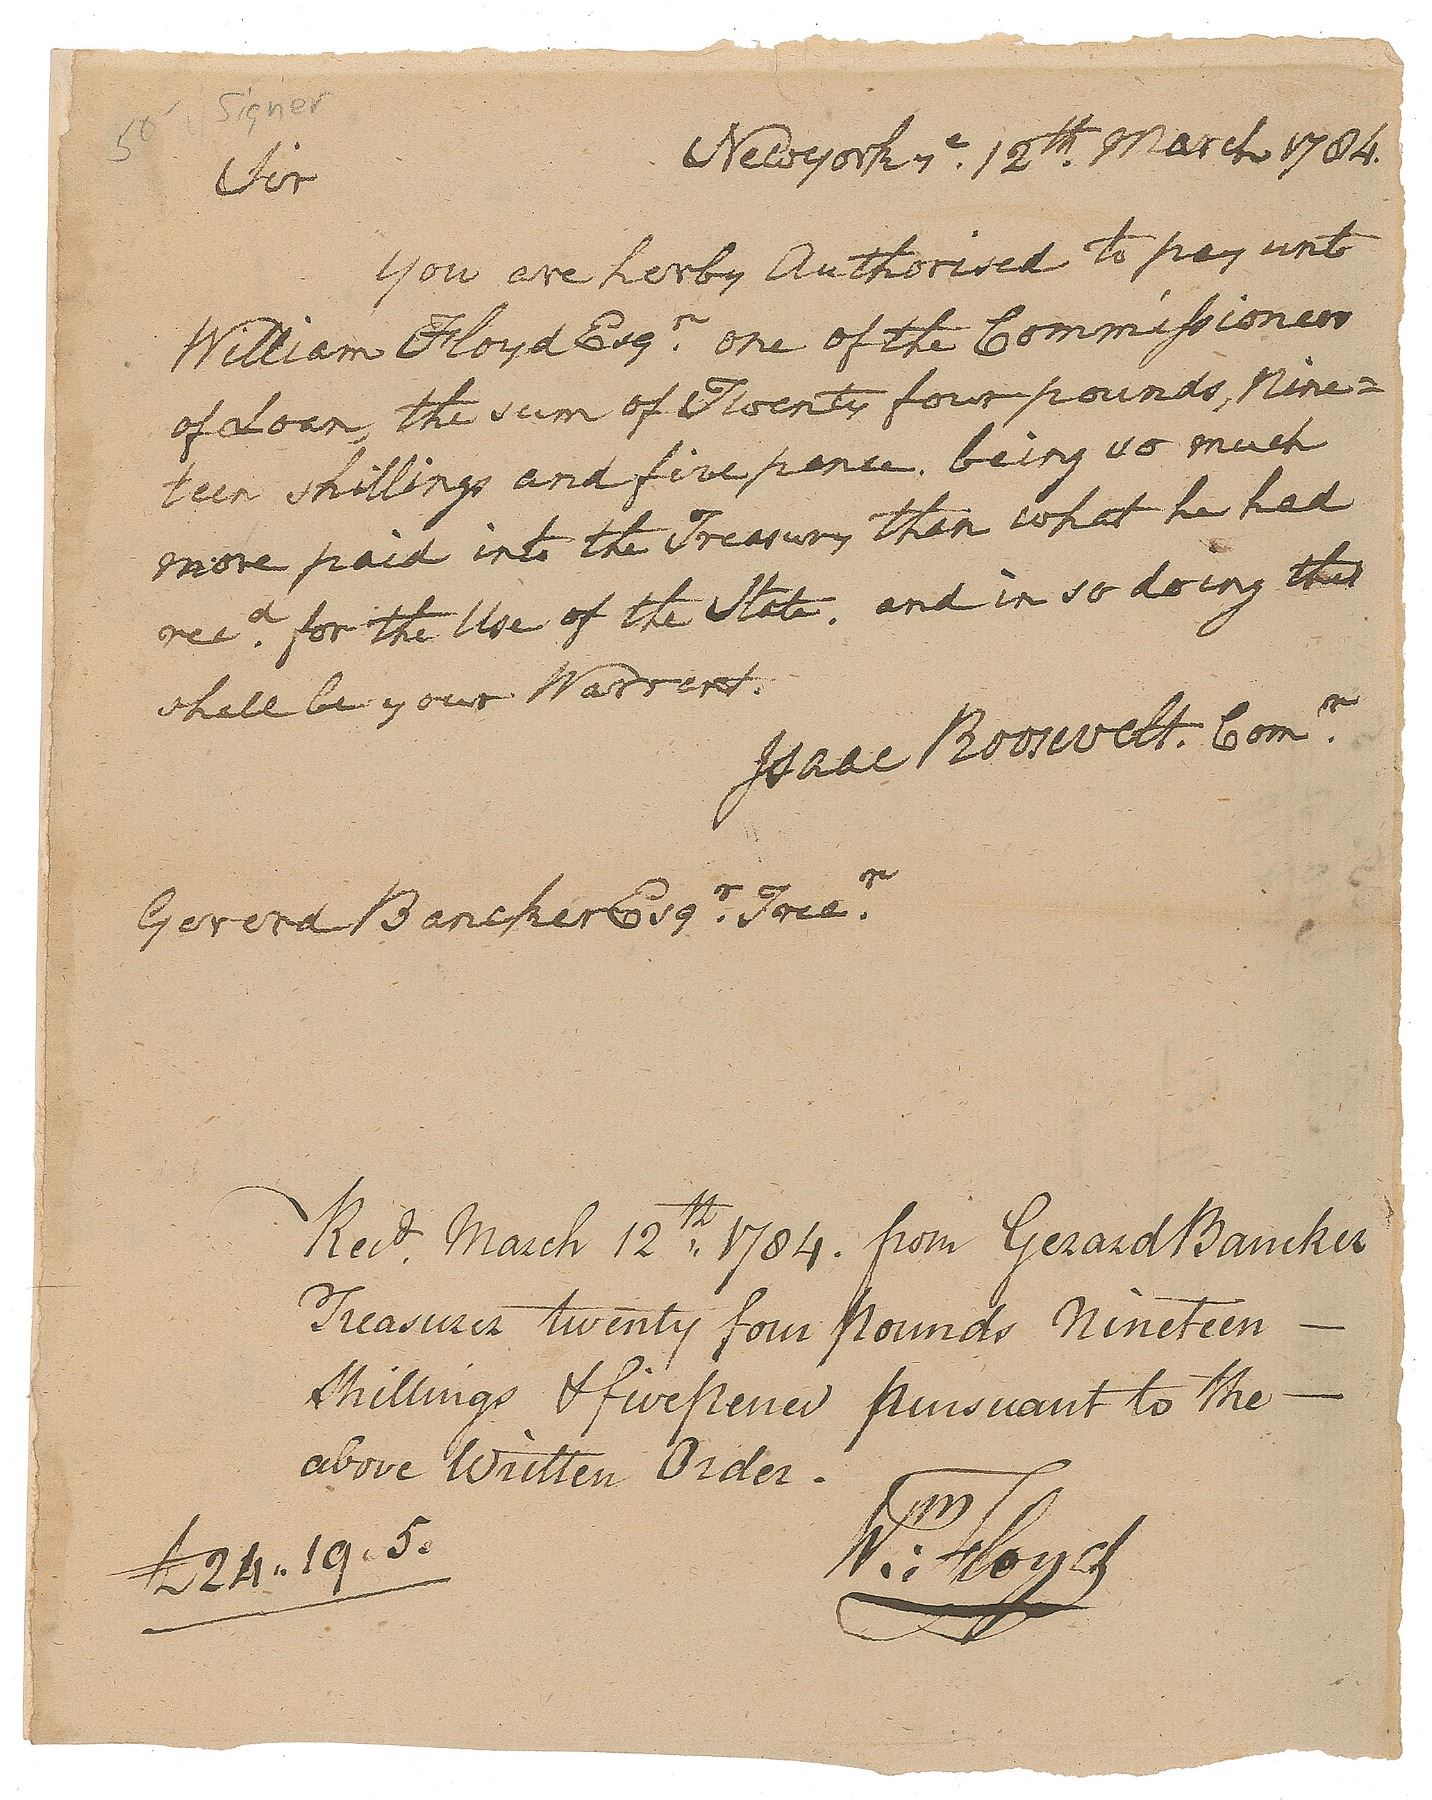 50 Signer
Newyork yᵉ. 12ᵗʰ. March 1784.
Sir
You are herby Authorised to pay unto
William Floyd Esqʳ. one of the Commissioners
of Loan, the sum of Twenty four pounds, Nine=
teen shillings and five pence. being so much
more paid into the Treasury than what he had
recᵈ. for the Use of the State. and in so doing this
shall be your Warrant.
Isaac Roosevelt. Comʳ.
Gererd Bancker Esqʳ. Treaʳ.
Recᵈ. March 12ᵗʰ. 1784. from Gerard Bancker
Treasurer twenty four Pounds Nineteen —
Shillings & five pence pursuant to the —
above Written Order.
£24.. 19.. 5.
Wᵐ: Floyd